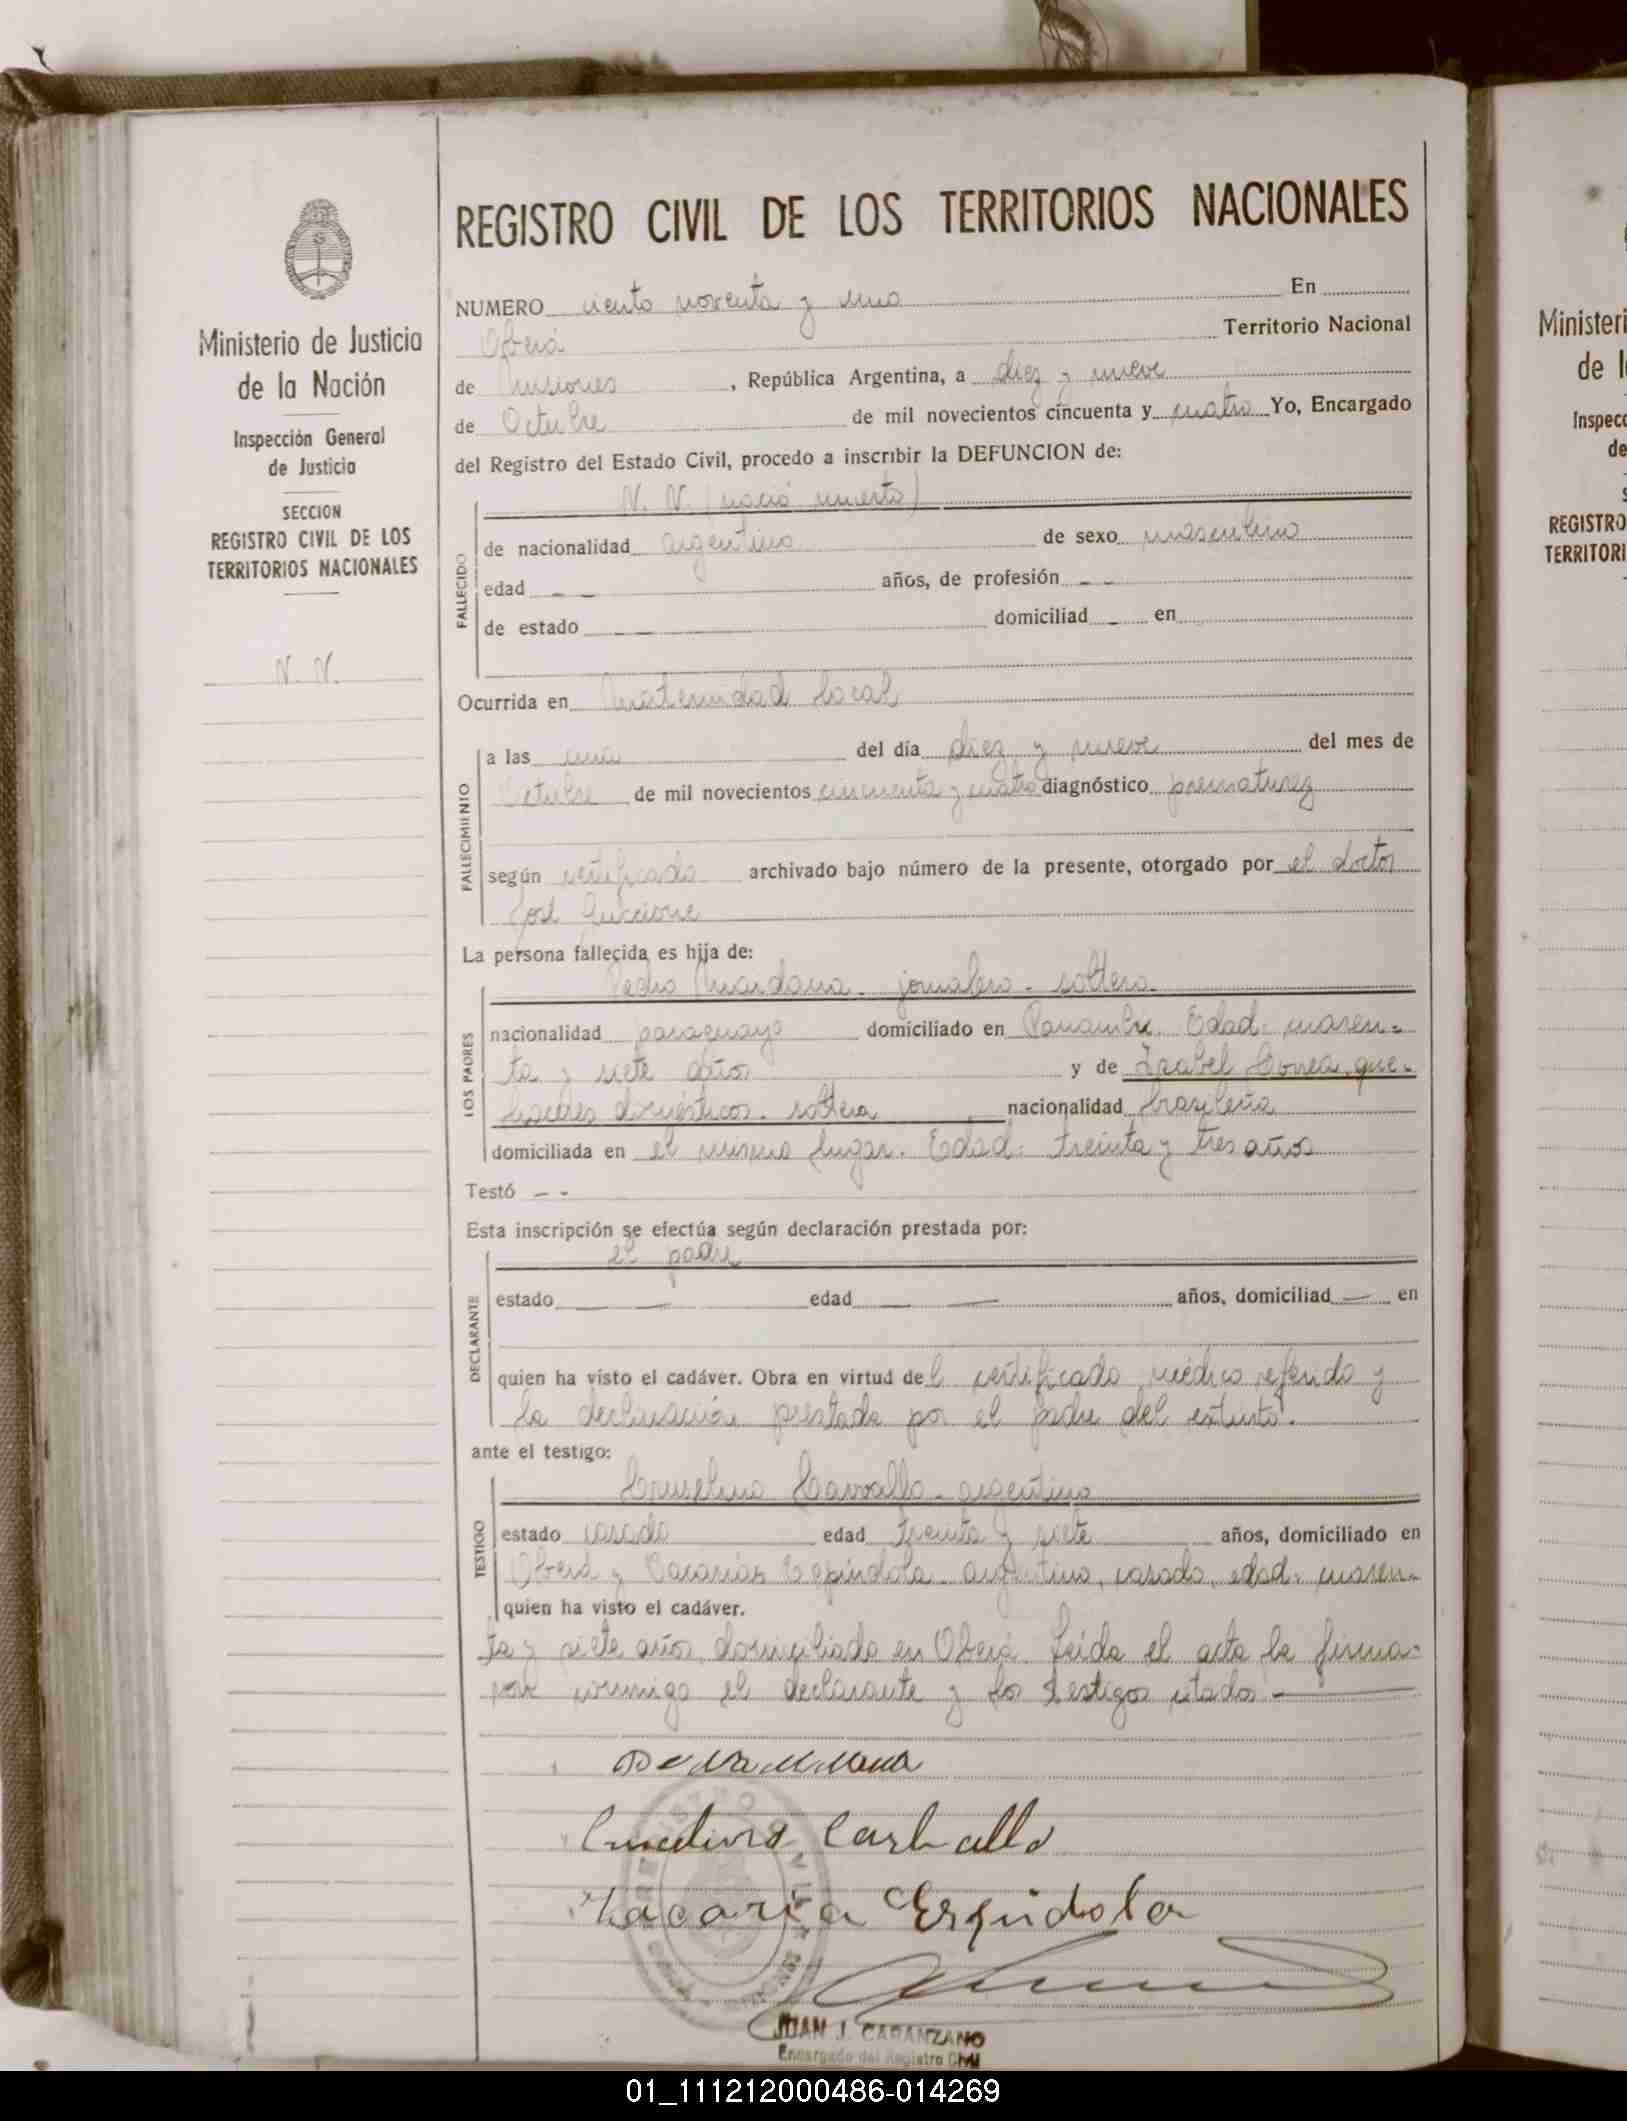 REGISTRO CIVIL DE LOS TERRITORIOS NACIONALES
Ministerio de Justicia
de la Nación
Inspección General
de Justicia
SECCION
REGISTRO CIVIL DE LOS
TERRITORIOS NACIONALES
N. N.
NUMERO ciento noventa y uno En
Oberá Territorio Nacional
de Misiones, República Argentina, a diez y nueve
de Octubre de mil novecientos cincuenta y cuatro Yo, Encargado
del Registro del Estado Civil, procedo a inscribir la DEFUNCION de:
FALLECIDO
N. N. (nació muerto)
de nacionalidad argentina de sexo masculino
edad -- años, de profesión --
de estado -- domiciliad - en
Ocurrida en Maternidad local
FALLECIMIENTO
a las una del día diez y nueve del mes de
Octubre de mil novecientos cincuenta y cuatro diagnóstico prematurez
según certificado archivado bajo número de la presente, otorgado por el doctor
José Guccione
La persona fallecida es hija de:
LOS PADRES
Pedro Maidana. jornalero - soltero.
nacionalidad paraguayo domiciliado en Panambi. Edad: cuaren-
ta y siete años y de Isabel Correa, que-
haceres domésticos. soltera nacionalidad brasileña
domiciliada en el mismo lugar. Edad: treinta y tres años
Testó --
Esta inscripción se efectúa según declaración prestada por:
DECLARANTE
el padre
estado -- edad -- años, domiciliad - en
quien ha visto el cadáver. Obra en virtud del certificado médico referido y
la declaración prestada por el padre del extinto.
ante el testigo:
TESTIGO
Carvallo - argentino
estado casado edad treinta y siete años, domiciliado en
Oberá y Zacarías Espíndola - argentino, casado, edad: cuaren-
quien ha visto el cadáver.
ta y siete años, domiciliado en Oberá. Leída el acta la firma-
ron conmigo el declarante y los testigos citados -
Carballo
Zacaria Espindola
JUAN J. CARANZANO
Encargado del Registro Civil
Ministeri
de l
Inspecc
de
S
REGISTRO
TERRITORI
01_111212000486-014269